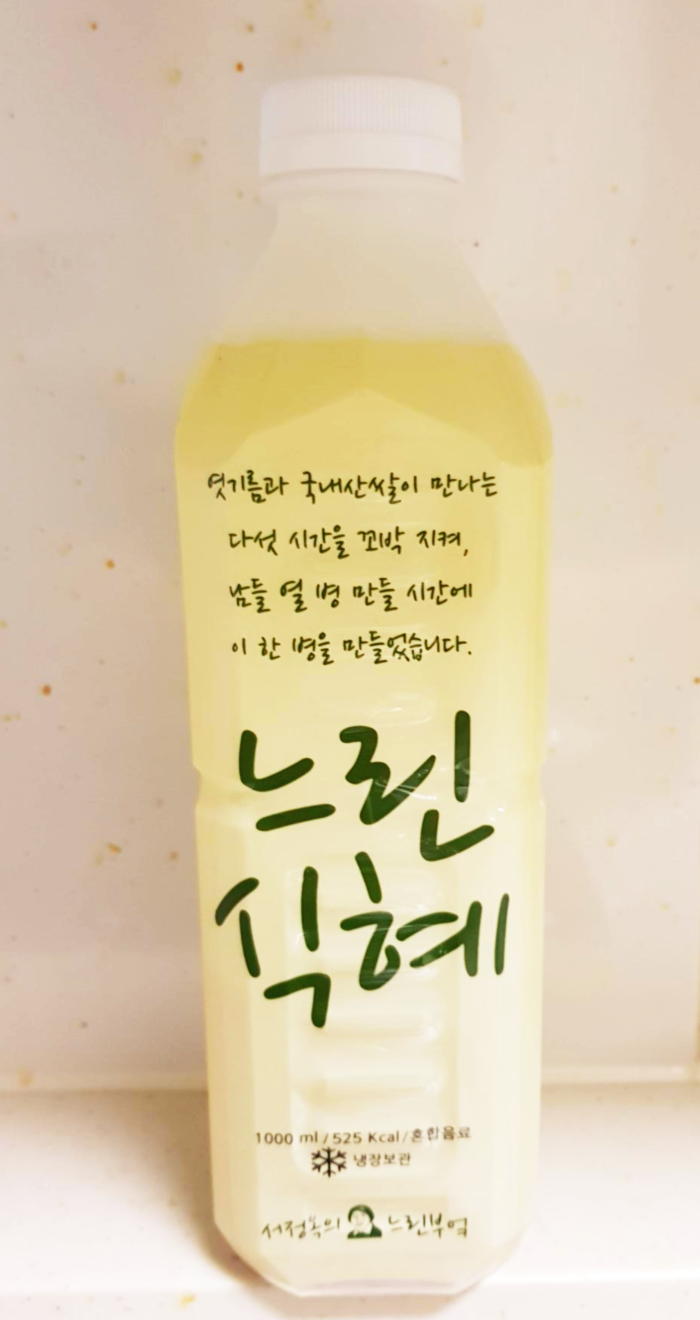 엿기름과 국내산쌀이 만나는
다섯 시간을 꼬박 지켜,
남들 열 병 만들 시간에
이 한 병을 만들었습니다.
느린
식혜
1000 ml / 525 Kcal / 혼합음료
냉장보관
서정옥의 느린부엌